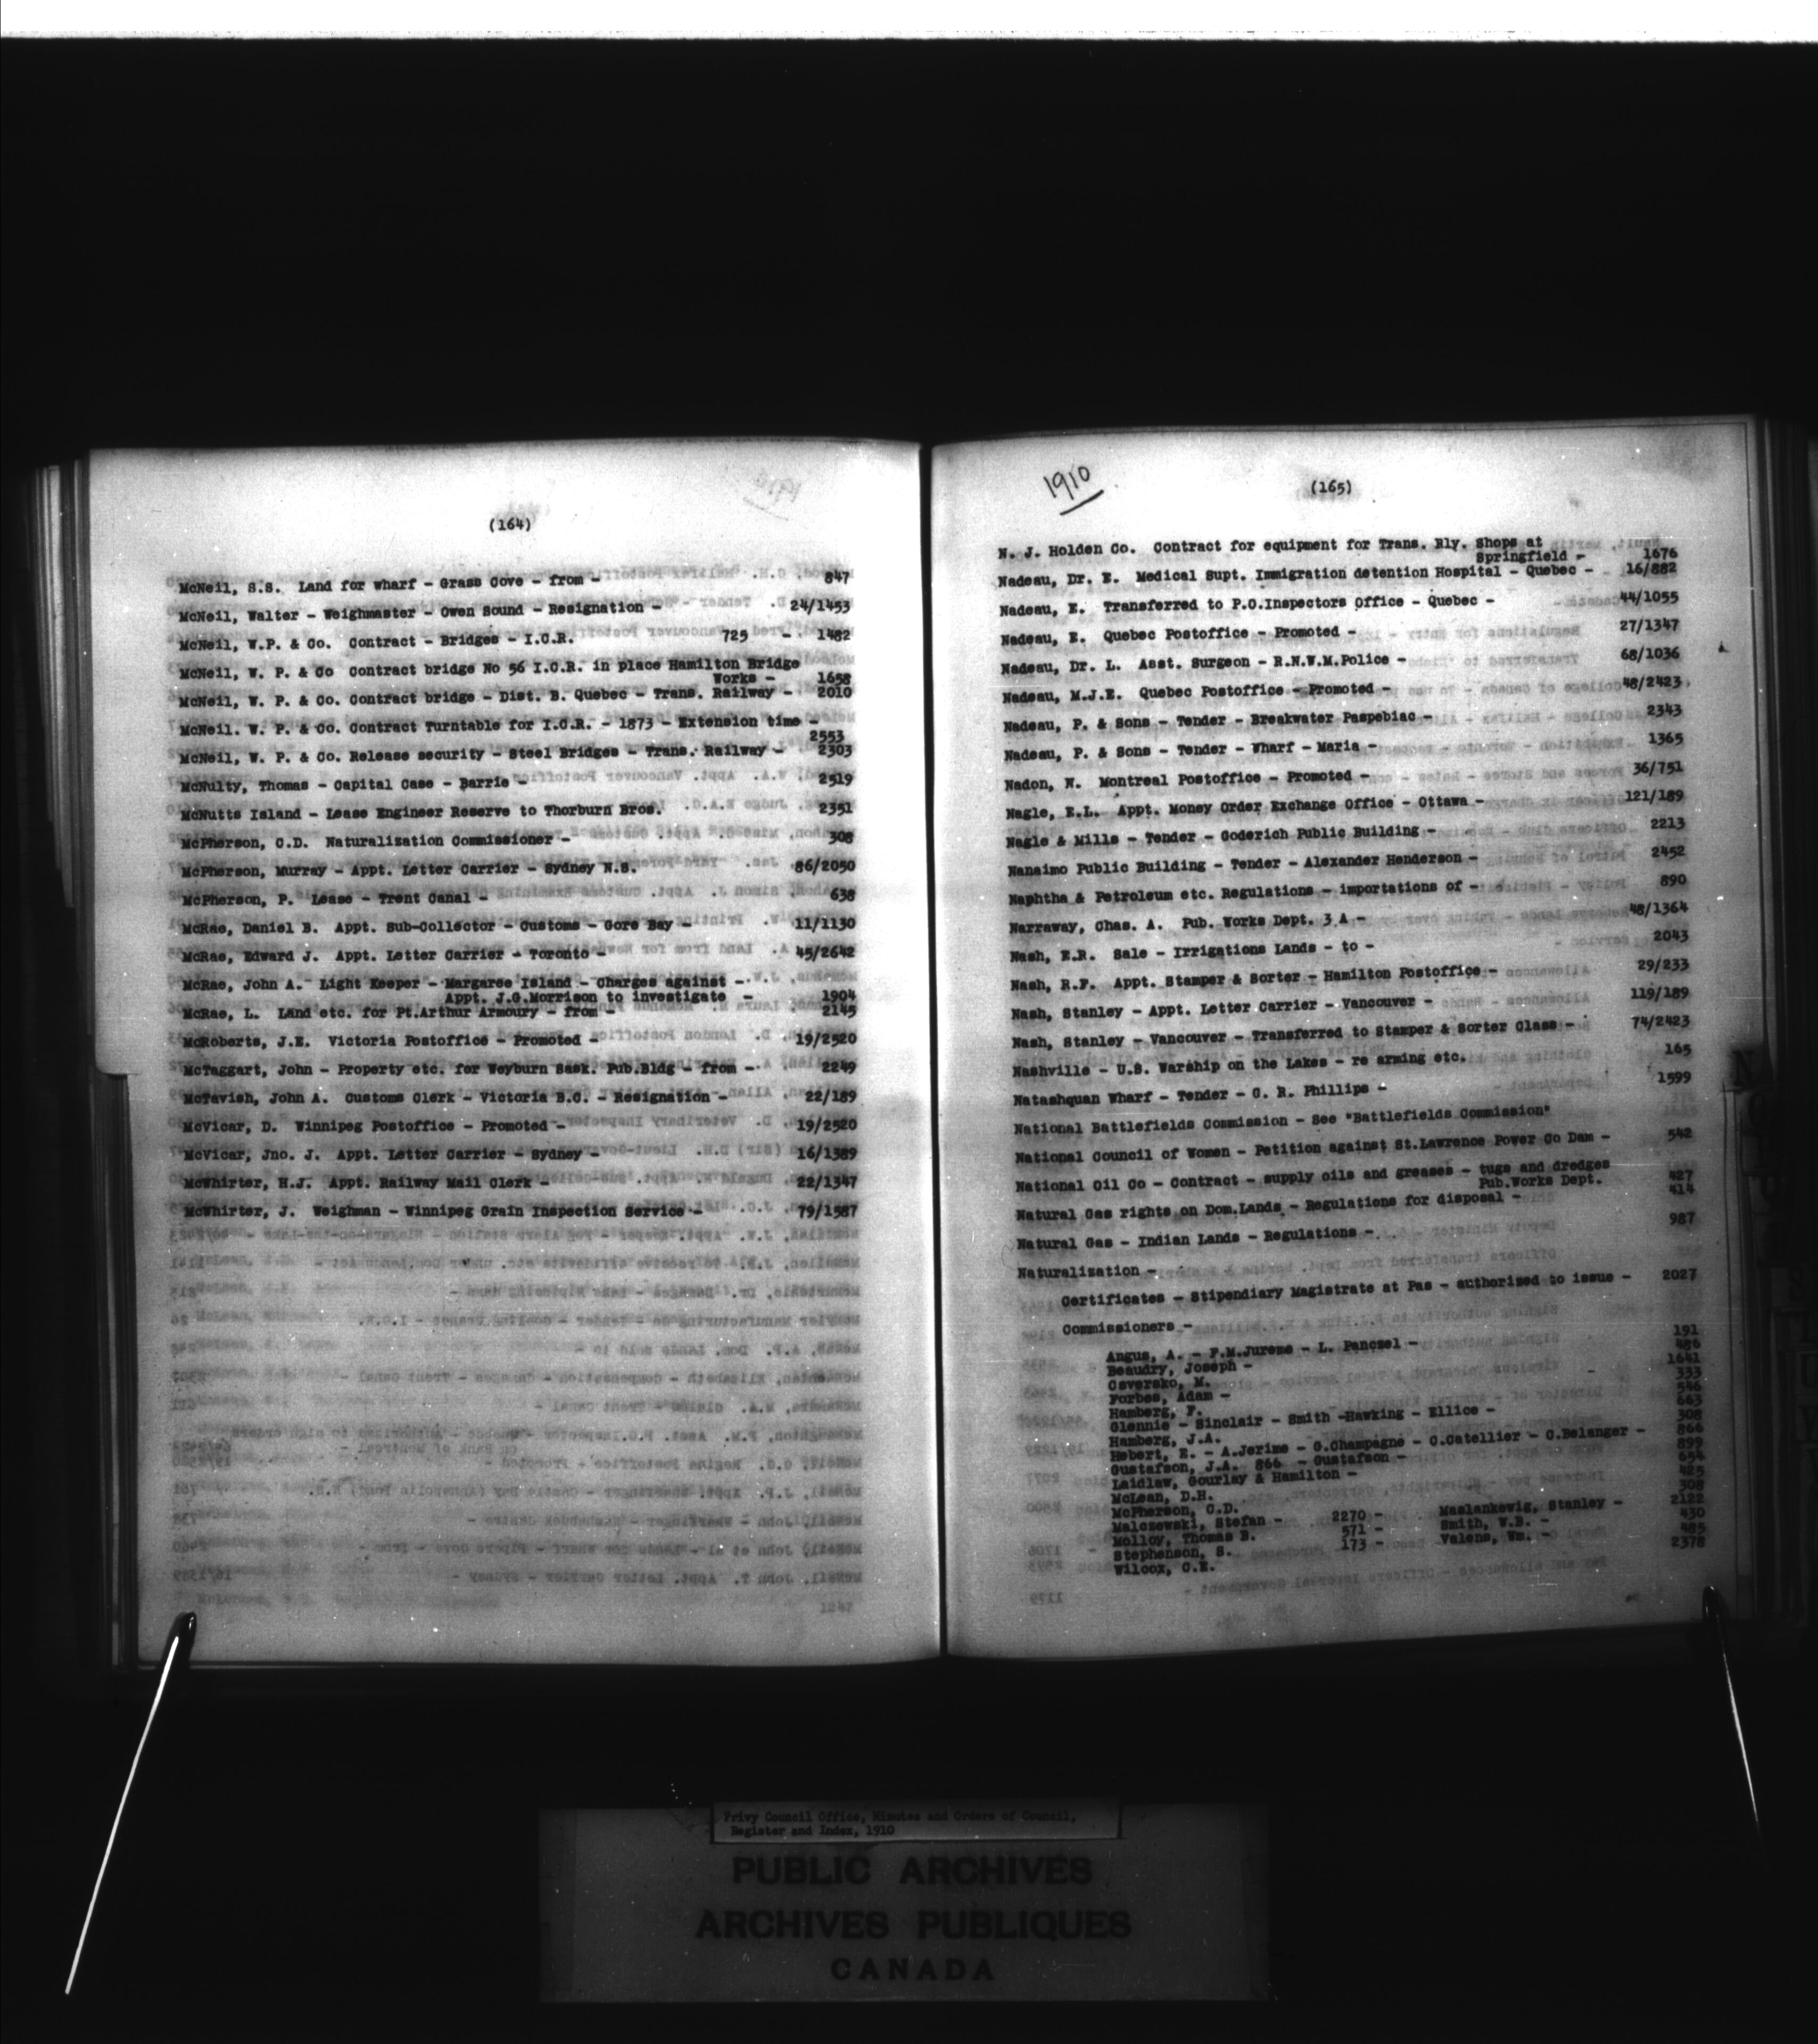 (164)
McNeil, S.S. Land for wharf - Grass Cove - from - 847
McNeil, Walter - Weighmaster - Owen Sound - Resignation - 24/1453
McNeil, W.P. & Co. Contract - Bridges - I.C.R. 725 - 1482
McNeil, W. P. & Co Contract bridge No 56 I.C.R. in place Hamilton Bridge
Works - 1658
McNeil, W. P. & Co. Contract bridge - Dist. B. Quebec - Trans. Railway - 2010
McNeil. W. P. & Co. Contract Turntable for I.C.R. - 1873 - Extension time -
2553
McNeil, W. P. & Co. Release security - Steel Bridges - Trans. Railway - 2303
McNulty, Thomas - Capital Case - Barrie - 2519
McNutts Island - Lease Engineer Reserve to Thorburn Bros. 2351
McPherson, C.D. Naturalization Commissioner - 308
McPherson, Murray - Appt. Letter Carrier - Sydney N.S. 86/2050
McPherson, P. Lease - Trent Canal - 638
McRae, Daniel B. Appt. Sub-Collector - Customs - Gore Bay - 11/1130
McRae, Edward J. Appt. Letter Carrier - Toronto - 45/2642
McRae, John A. - Light Keeper - Margaree Island - Charges against -
Appt. J.G.Morrison to investigate - 1904
McRae, L. Land etc. for Pt.Arthur Armoury - from - 2145
McRoberts, J.E. Victoria Postoffice - Promoted - 19/2520
McTaggart, John - Property etc. for Weyburn Sask. Pub.Bldg - from - 2249
McTavish, John A. Customs Clerk - Victoria B.C. - Resignation - 22/189
McVicar, D. Winnipeg Postoffice - Promoted - 19/2520
McVicar, Jno. J. Appt. Letter Carrier - Sydney - 16/1389
McWhirter, H.J. Appt. Railway Mail Clerk - 22/1347
McWhirter, J. Weighman - Winnipeg Grain Inspection Service - 79/1587
1910
(165)
N. J. Holden Co. Contract for equipment for Trans. Rly. Shops at
Springfield - 1676
Nadeau, Dr. E. Medical Supt. Immigration detention Hospital - Quebec - 16/882
Nadeau, E. Transferred to P.O.Inspectors Office - Quebec - 44/1055
Nadeau, E. Quebec Postoffice - Promoted - 27/1347
Nadeau, Dr. L. Asst. Surgeon - R.N.W.M.Police - 68/1036
Nadeau, M.J.E. Quebec Postoffice - Promoted - 48/2423
Nadeau, P. & Sons - Tender - Breakwater Paspebiac - 2343
Nadeau, P. & Sons - Tender - Wharf - Maria - 1365
Nadon, N. Montreal Postoffice - Promoted - 36/751
Nagle, E.L. Appt. Money Order Exchange Office - Ottawa - 121/189
Nagle & Mills - Tender - Goderich Public Building - 2213
Nanaimo Public Building - Tender - Alexander Henderson - 2452
Naphtha & Petroleum etc. Regulations - importations of - 890
Narraway, Chas. A. Pub. Works Dept. 3 A - 48/1364
Nash, E.R. Sale - Irrigations Lands - to - 2043
Nash, R.F. Appt. Stamper & Sorter - Hamilton Postoffice - 29/233
Nash, Stanley - Appt. Letter Carrier - Vancouver - 119/189
Nash, Stanley - Vancouver - Transferred to Stamper & Sorter Class - 74/2423
Nashville - U.S. Warship on the Lakes - re arming etc. 165
Natashquan Wharf - Tender - C. R. Phillips - 1599
National Battlefields Commission - See "Battlefields Commission"
National Council of Women - Petition against St.Lawrence Power Co Dam - 542
National Oil Co - Contract - supply oils and greases - tugs and dredges
Pub.Works Dept. 427
Natural Gas rights on Dom.Lands - Regulations for disposal - 414
Natural Gas - Indian Lands - Regulations - 987
Naturalization -
Certificates - Stipendiary Magistrate at Pas - authorized to issue - 2027
Commissioners -
Angus, A. - F.M.Jureme - L. Panczel - 191
Beaudry, Joseph - 486
Csversko, M. 1641
Forbes, Adam - 333
Hamberg, F. 546
Glennie - Sinclair - Smith -Hawking - Ellice - 663
Hamberg, J.A. 308
Hebert, E. - A.Jerime - G.Champagne - C.Catellier - C.Belanger - 866
Gustafson, J.A. 866 - Gustafson - 899
Laidlaw, Gourlay & Hamilton - 654
McLean, D.H. 425
McPherson, C.D. 308
Malczewski, Stefan - 2270 - Maslankowig, Stanley - 2122
Molloy, Thomas B. 571 - Smith, W.B. - 430
Stephenson, S. 173 - Valens, Wm. - 485
Wilcox, C.E. 2378
Privy Council Office, Minutes and Orders of Council,
Register and Index, 1910
PUBLIC ARCHIVES
ARCHIVES PUBLIQUES
CANADA